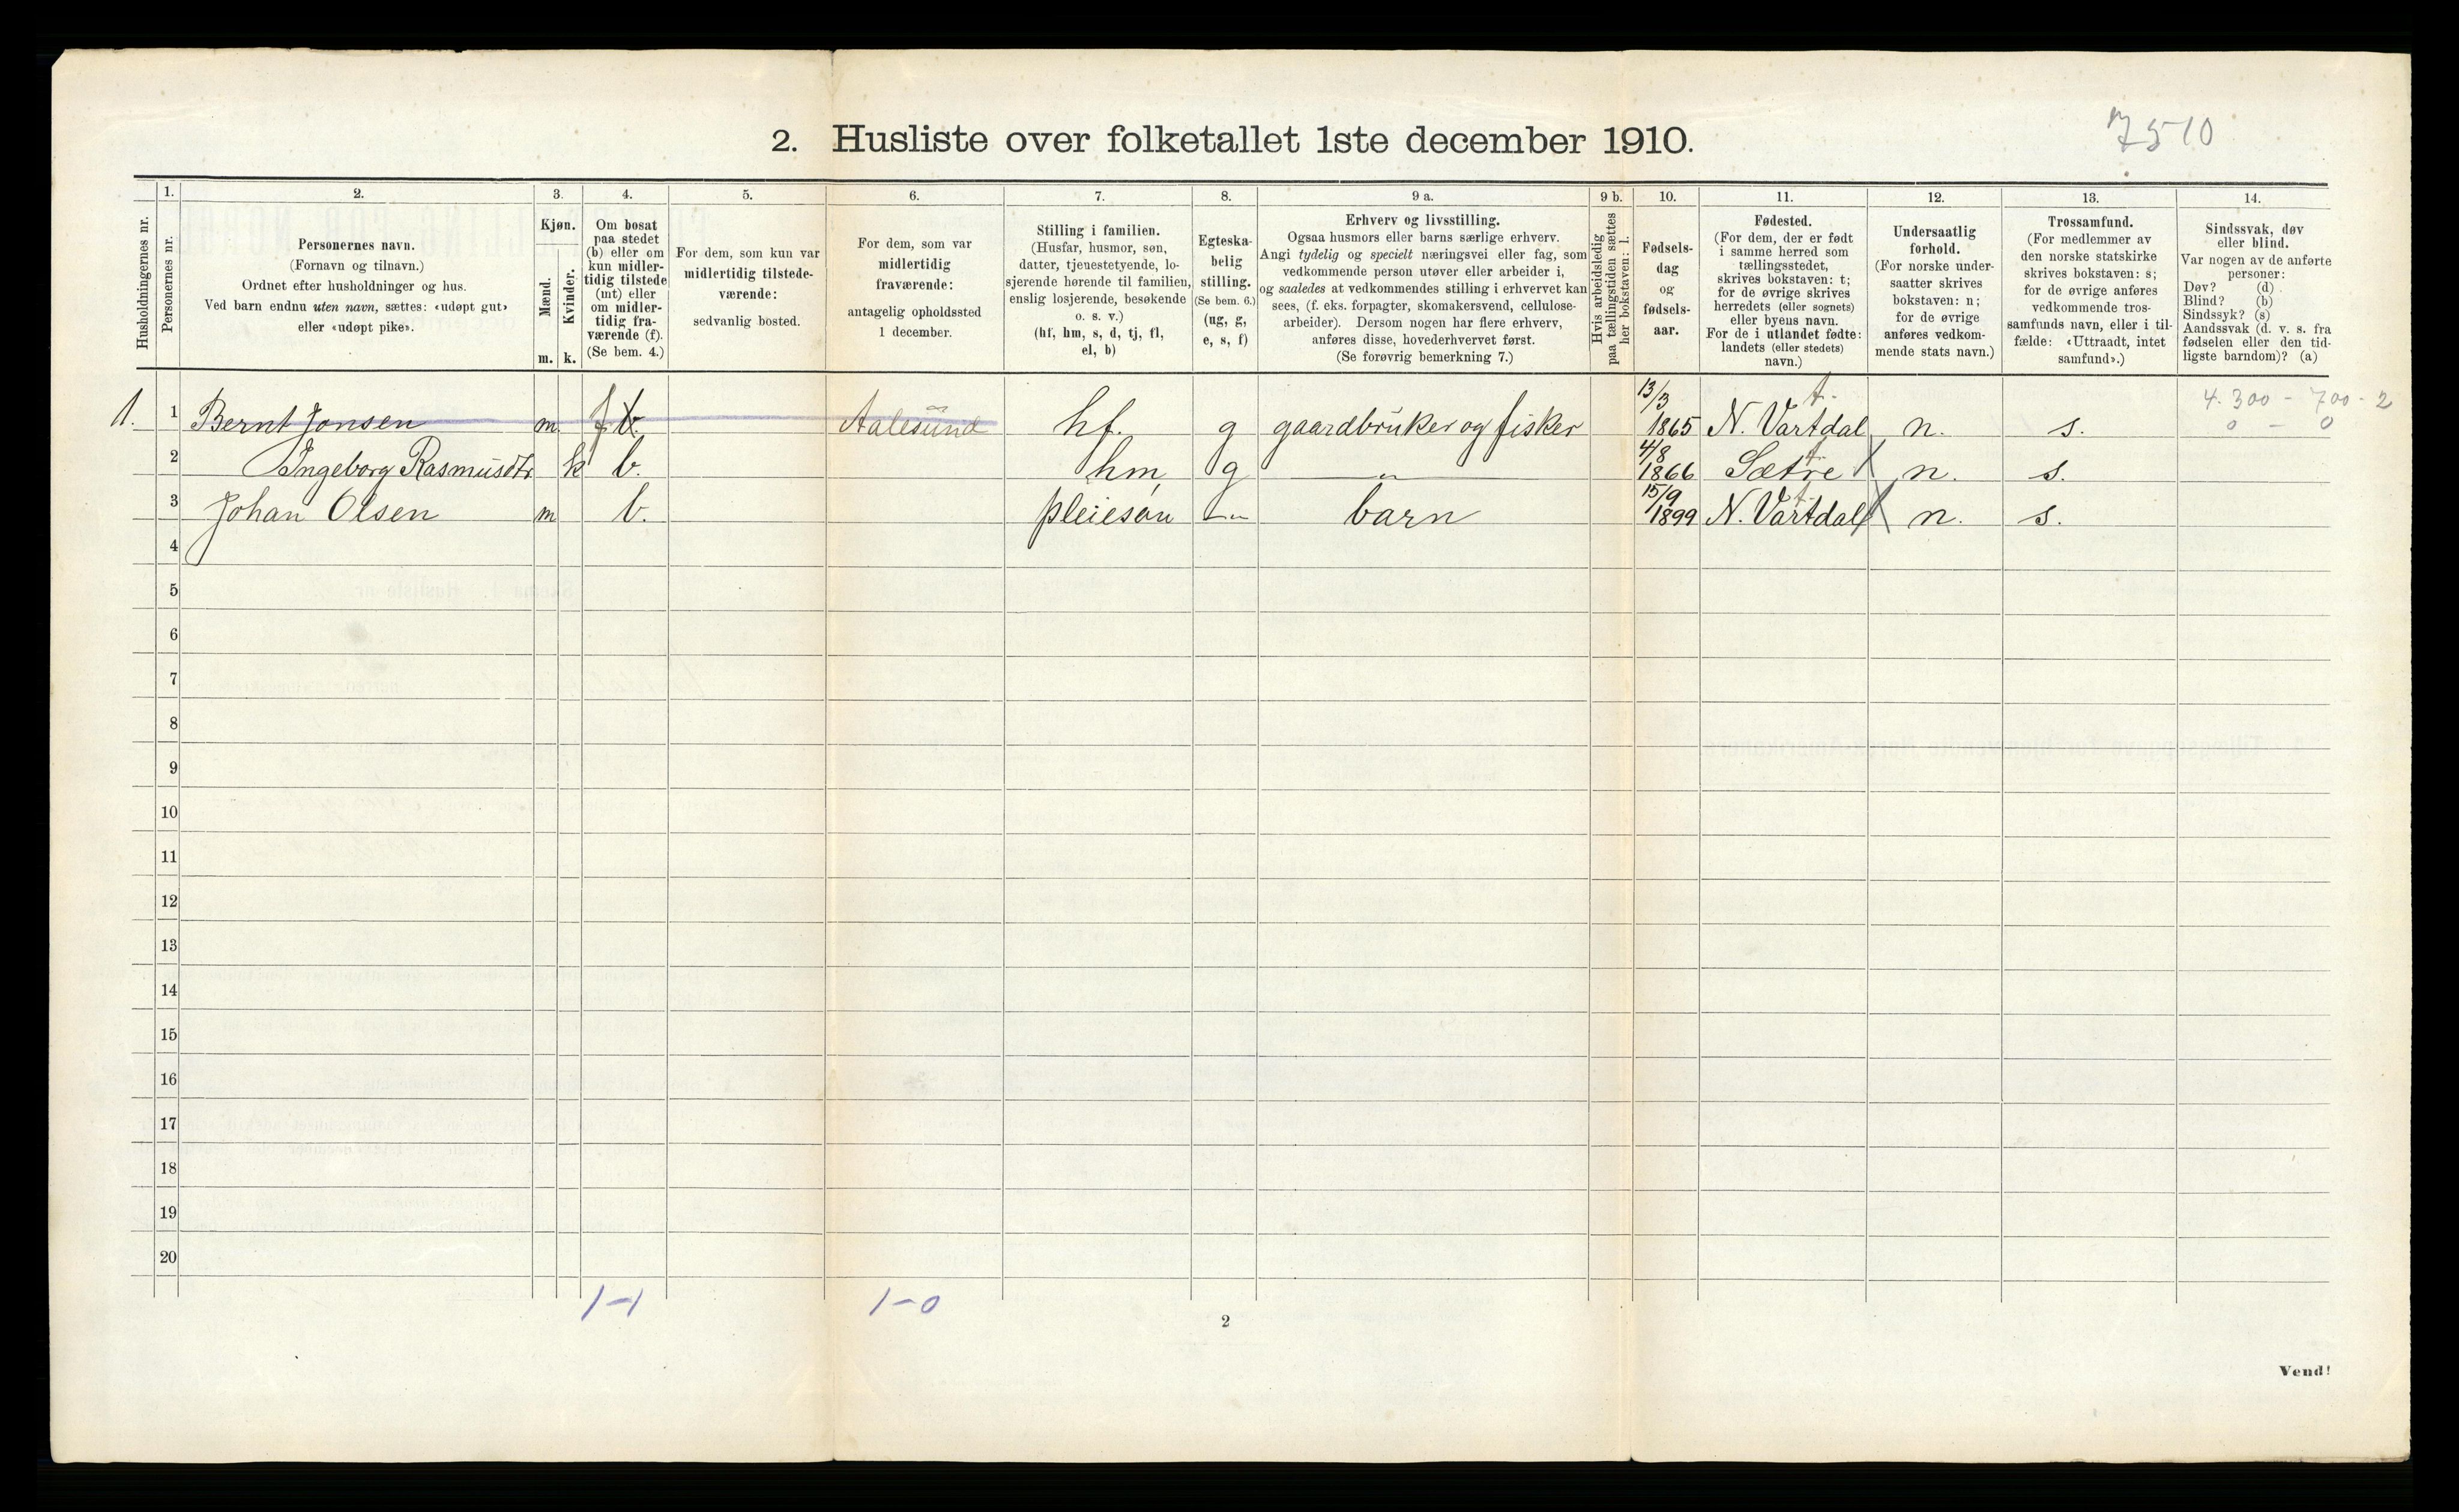 7510
2. Husliste over folketallet 1ste december 1910.
Husholdningernes nr.
1.
Personernes nr.
2.
Personernes navn.
(Fornavn og tilnavn.)
Ordnet efter husholdninger og hus.
Ved barn endnu uten navn, sættes: «udøpt gut»
eller «udøpt pike».
3.
Kjøn.
Mænd.
Kvinder.
m. k.
4.
Om bosat
paa stedet
(b) eller om
kun midler-
tidig tilstede
(mt) eller
om midler-
tidig fra-
værende (f).
(Se bem. 4.)
5.
For dem, som kun var
midlertidig tilstede-
værende:
sedvanlig bosted.
6.
For dem, som var
midlertidig
fraværende:
antagelig opholdssted
1 december.
7.
Stilling i familien.
(Husfar, husmor, søn,
datter, tjenestetyende, lo-
sjerende hørende til familien,
enslig losjerende, besøkende
o. s. v.)
(hf, hm, s, d, tj, fl,
el, b)
8.
Egteska-
belig
stilling.
(Se bem. 6.)
(ug, g,
e, s, f)
9 a.
Erhverv og livsstilling.
Ogsaa husmors eller barns særlige erhverv.
Angi tydelig og specielt næringsvei eller fag, som
vedkommende person utøver eller arbeider i,
og saaledes at vedkommendes stilling i erhvervet kan
sees, (f. eks. forpagter, skomakersvend, cellulose-
arbeider). Dersom nogen har flere erhverv,
anføres disse, hovederhvervet først.
(Se forøvrig bemerkning 7.)
9 b.
Hvis arbeidsledig
paa tællingstiden sættes
her bokstaven: l.
10.
Fødsels-
dag
og
fødsels-
aar.
11.
Fødested.
(For dem, der er født
i samme herred som
tællingsstedet,
skrives bokstaven: t;
for de øvrige skrives
herredets (eller sognets)
eller byens navn.
For de i utlandet fødte:
landets (eller stedets)
navn.)
12.
Undersaatlig
forhold.
(For norske under-
saatter skrives
bokstaven: n;
for de øvrige
anføres vedkom-
mende stats navn.)
13.
Trossamfund.
(For medlemmer av
den norske statskirke
skrives bokstaven: s;
for de øvrige anføres
vedkommende tros-
samfunds navn, eller i til-
fælde: «Uttraadt, intet
samfund».)
14.
Sindssvak, døv
eller blind.
Var nogen av de anførte
personer:
Døv? (d)
Blind? (b)
Sindssyk? (s)
Aandssvak (d. v. s. fra
fødselen eller den tid-
ligste barndom)? (a)
4.300 - 700 - 2
0 - 0
1. 1 Bernt Jonsen m. f b. Aalesund hf. g gaardbruker og fisker 13/3 1865 N. Vartdal t. n. s.
2 Ingeborg Rasmusdtr k b. hm, g — " — 4/8 1866 Sætre t. n. s.
3 Johan Olsen m b. pleiesøn — " — barn 15/9 1899 N. Vartdal t. n. s.
4
5
6
7
8
9
10
11
12
13
14
15
16
17
18
19
20
1-1 1-0
2
Vend!